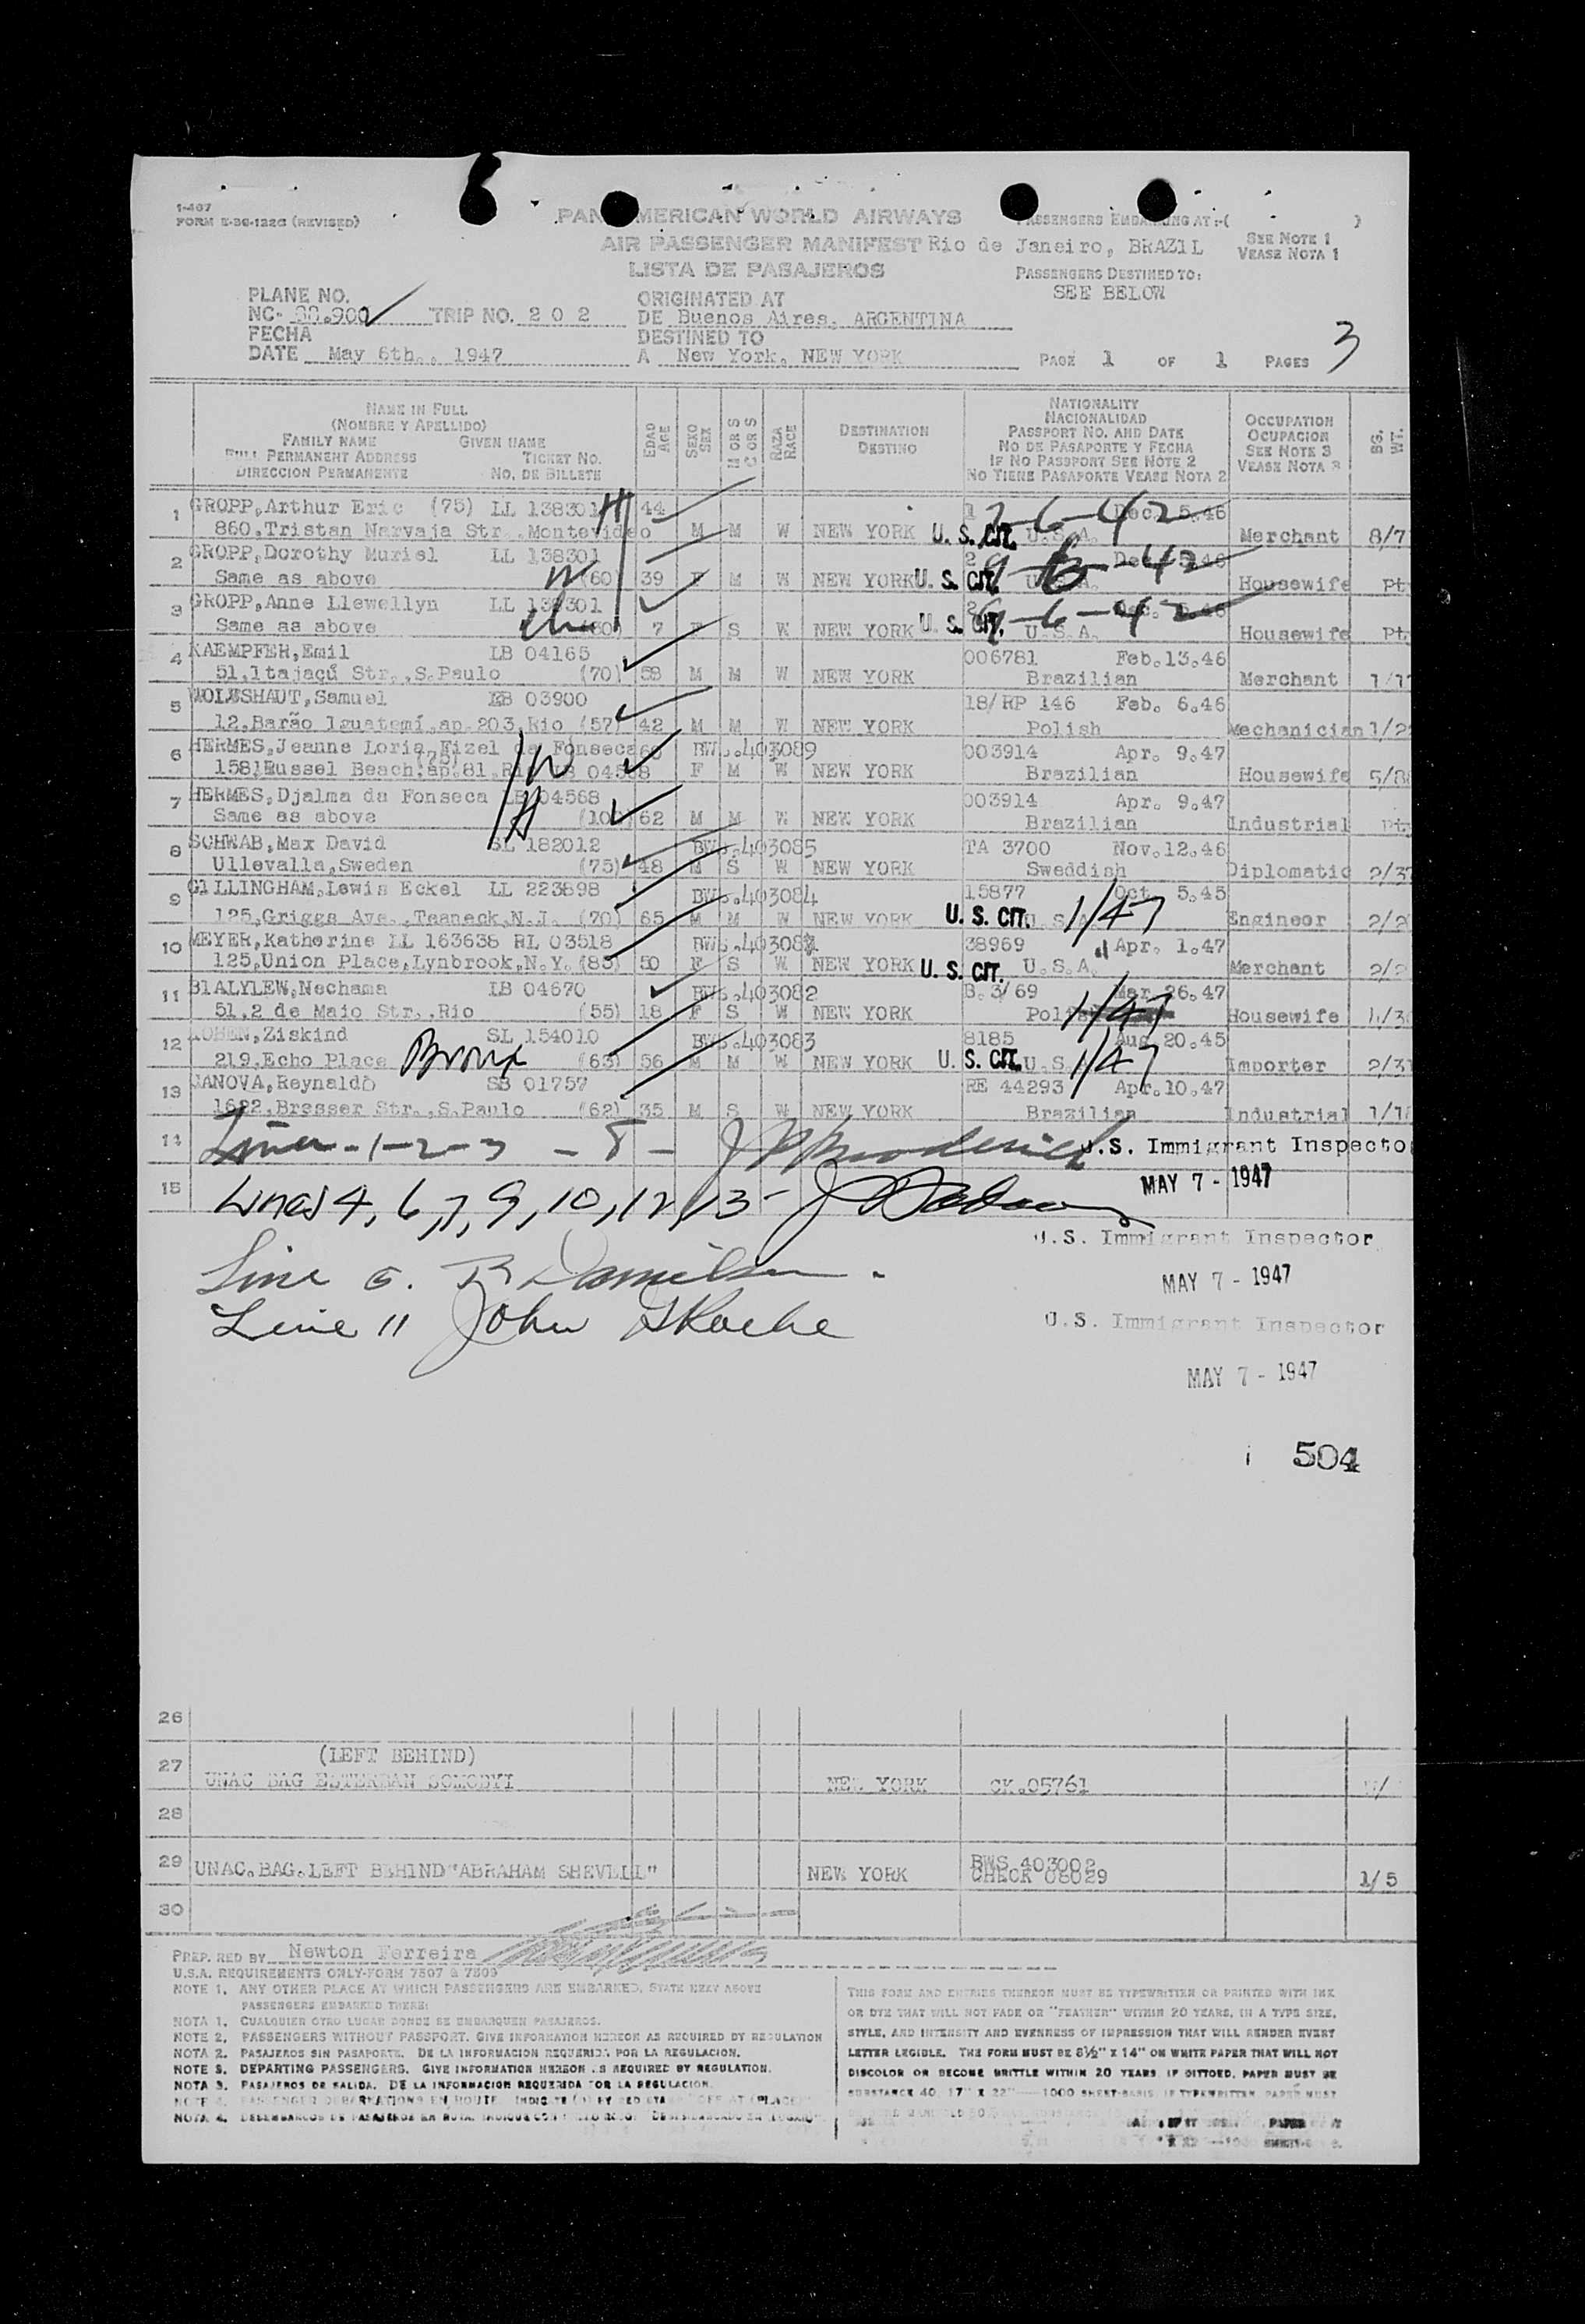 1-467
FORM E-36-122G (REVISED)
PAN AMERICAN WORLD AIRWAYS
AIR PASSENGER MANIFEST
LISTA DE PASAJEROS
PASSENGERS EMBARKING AT :-( )
Rio de Janeiro, BRAZIL
SEE NOTE 1
VEASE NOTA 1
PASSENGERS DESTINED TO:
SEE BELOW
PLANE NO.
NC- 88.900 TRIP NO. 2 0 2
FECHA
DATE May 6th., 1947
ORIGINATED AT
DE Buenos Aires, ARGENTINA
DESTINED TO
A New York, NEW YORK
PAGE 1 OF 1 PAGES 3
NAME IN FULL
(NOMBRE Y APELLIDO)
FAMILY NAME GIVEN NAME
FULL PERMANENT ADDRESS TICKET NO.
DIRECCION PERMANENTE NO. DE BILLETE
EDAD AGE
SEXO SEX
M OR S C OR S
RAZA RACE
DESTINATION
DESTINO
NATIONALITY
NACIONALIDAD
PASSPORT NO. AND DATE
NO DE PASAPORTE Y FECHA
IF NO PASSPORT SEE NOTE 2
NO TIENE PASAPORTE VEASE NOTA 2
OCCUPATION
OCUPACION
SEE NOTE 3
VEASE NOTA 3
BG. WT.
1 GROPP,Arthur Eric (75) LL 138301 H 44 Dec. 5.46
860,Tristan Narvaja Str.,Montevideo M M W NEW YORK U. S. CIT. U.S.A. Merchant 8/7
2 GROPP,Dorothy Muriel LL 138301
Same as above W (60) 39 F M W NEW YORK U. S. CIT. U.S.A. Housewife Pt
3 GROPP,Anne Llewellyn LL 138301
Same as above 7 F S W NEW YORK U. S. CIT. U.S.A. Housewife Pt
4 KAEMPFER,Emil LB 04165 006781 Feb.13.46
51,Itajaçú Str.,S.Paulo (70) 58 M M W NEW YORK Brazilian Merchant 1/1
5 Samuel 03900 18/RP 146 Feb. 6.46
12,Barão Iguatemí,ap.203,Rio (57) 42 M M W NEW YORK Polish Mechanician 1/2
6 HERMES,Jeanne Loria Fizel da Fonseca BWS.403089 003914 Apr. 9.47
F M W NEW YORK Brazilian Housewife 5/8
7 HERMES,Djalma da Fonseca LB 04568 003914 Apr. 9.47
Same as above H 62 M M W NEW YORK Brazilian Industrial Pt
8 SCHWAB,Max David SL 182012 BWS.403085 TA 3700 Nov.12.46
Ullevalla,Sweden (75) 48 M S W NEW YORK Sweddish Diplomatic 2/3
9 GILLINGHAM,Lewis Eckel LL 223898 BWS.403084 15877 Oct. 5.45
125,Griggs Ave.,Teaneck,N.J. (70) 65 M M W NEW YORK U. S. CIT. U.S.A. 1/47 Engineer 2/2
10 MEYER,Katherine LL 163638 RL 03518 38969 Apr. 1.47
125,Union Place,Lynbrook,N.Y. (85) 50 F S W NEW YORK U. S. CIT. U.S.A. Merchant 2/2
11 BIALYLEW,Nechama LB 04670 BWS.403082 B.3/69 Mar.26.47
51,2 de Maio Str.,Rio (55) 18 F S W NEW YORK Housewife 4/3
12 Ziskind SL 154010 BWS.403083 8185 Aug.20.45
219,Echo Place Bronx (63) 56 M M W NEW YORK U. S. CIT. U.S. 1/47 Importer 2/3
13 JANOVA,Reynaldo SB 01757 RE 44293 Apr.10.47
1622,Bresser Str.,S.Paulo (62) 35 M S W NEW YORK Brazilian Industrial 1/1
14 Lines - 1-2-3 - 8 - U.S. Immigrant Inspector
15 Lines 4, 6, 7, 9, 10, 12, 13 - MAY 7 - 1947
U.S. Immigrant Inspector
Line 5.
MAY 7 - 1947
Line 11 John
U.S. Immigrant Inspector
MAY 7 - 1947
504
26
(LEFT BEHIND)
27 UNAC BAG NEW YORK CK.05761
28
29 UNAC.BAG.LEFT BEHIND "ABRAHAM SHEVELL" NEW YORK BWS 403002
CHECK 08029 1/5
30
PREPARED BY Newton Ferreira
U.S.A. REQUIREMENTS ONLY-FORM 7507 & 7509
NOTE 1. ANY OTHER PLACE AT WHICH PASSENGERS ARE EMBARKED, STATE HERE ABOVE
PASSENGERS EMBARKED THERE:
NOTA 1. CUALQUIER OTRO LUGAR DONDE SE EMBARQUEN PASAJEROS.
NOTE 2. PASSENGERS WITHOUT PASSPORT. GIVE INFORMATION HEREON AS REQUIRED BY REGULATION
NOTA 2. PASAJEROS SIN PASAPORTE. DE LA INFORMACION REQUERIDA POR LA REGULACION.
NOTE 3. DEPARTING PASSENGERS. GIVE INFORMATION HEREON AS REQUIRED BY REGULATION.
NOTA 3. PASAJEROS DE SALIDA. DE LA INFORMACION REQUERIDA POR LA REGULACION.
THIS FORM AND ENTRIES THEREON MUST BE TYPEWRITTEN OR PRINTED WITH INK
OR DYE THAT WILL NOT FADE OR "FEATHER" WITHIN 20 YEARS, IN A TYPE SIZE,
STYLE, AND INTENSITY AND EVENNESS OF IMPRESSION THAT WILL RENDER EVERY
LETTER LEGIBLE. THE FORM MUST BE 8½" X 14" ON WHITE PAPER THAT WILL NOT
DISCOLOR OR BECOME BRITTLE WITHIN 20 YEARS. IF DITTOED, PAPER MUST BE
SUBSTANCE 40, 17" X 22" 1000 SHEET-BASIS. IF TYPEWRITTEN PAPER MUST